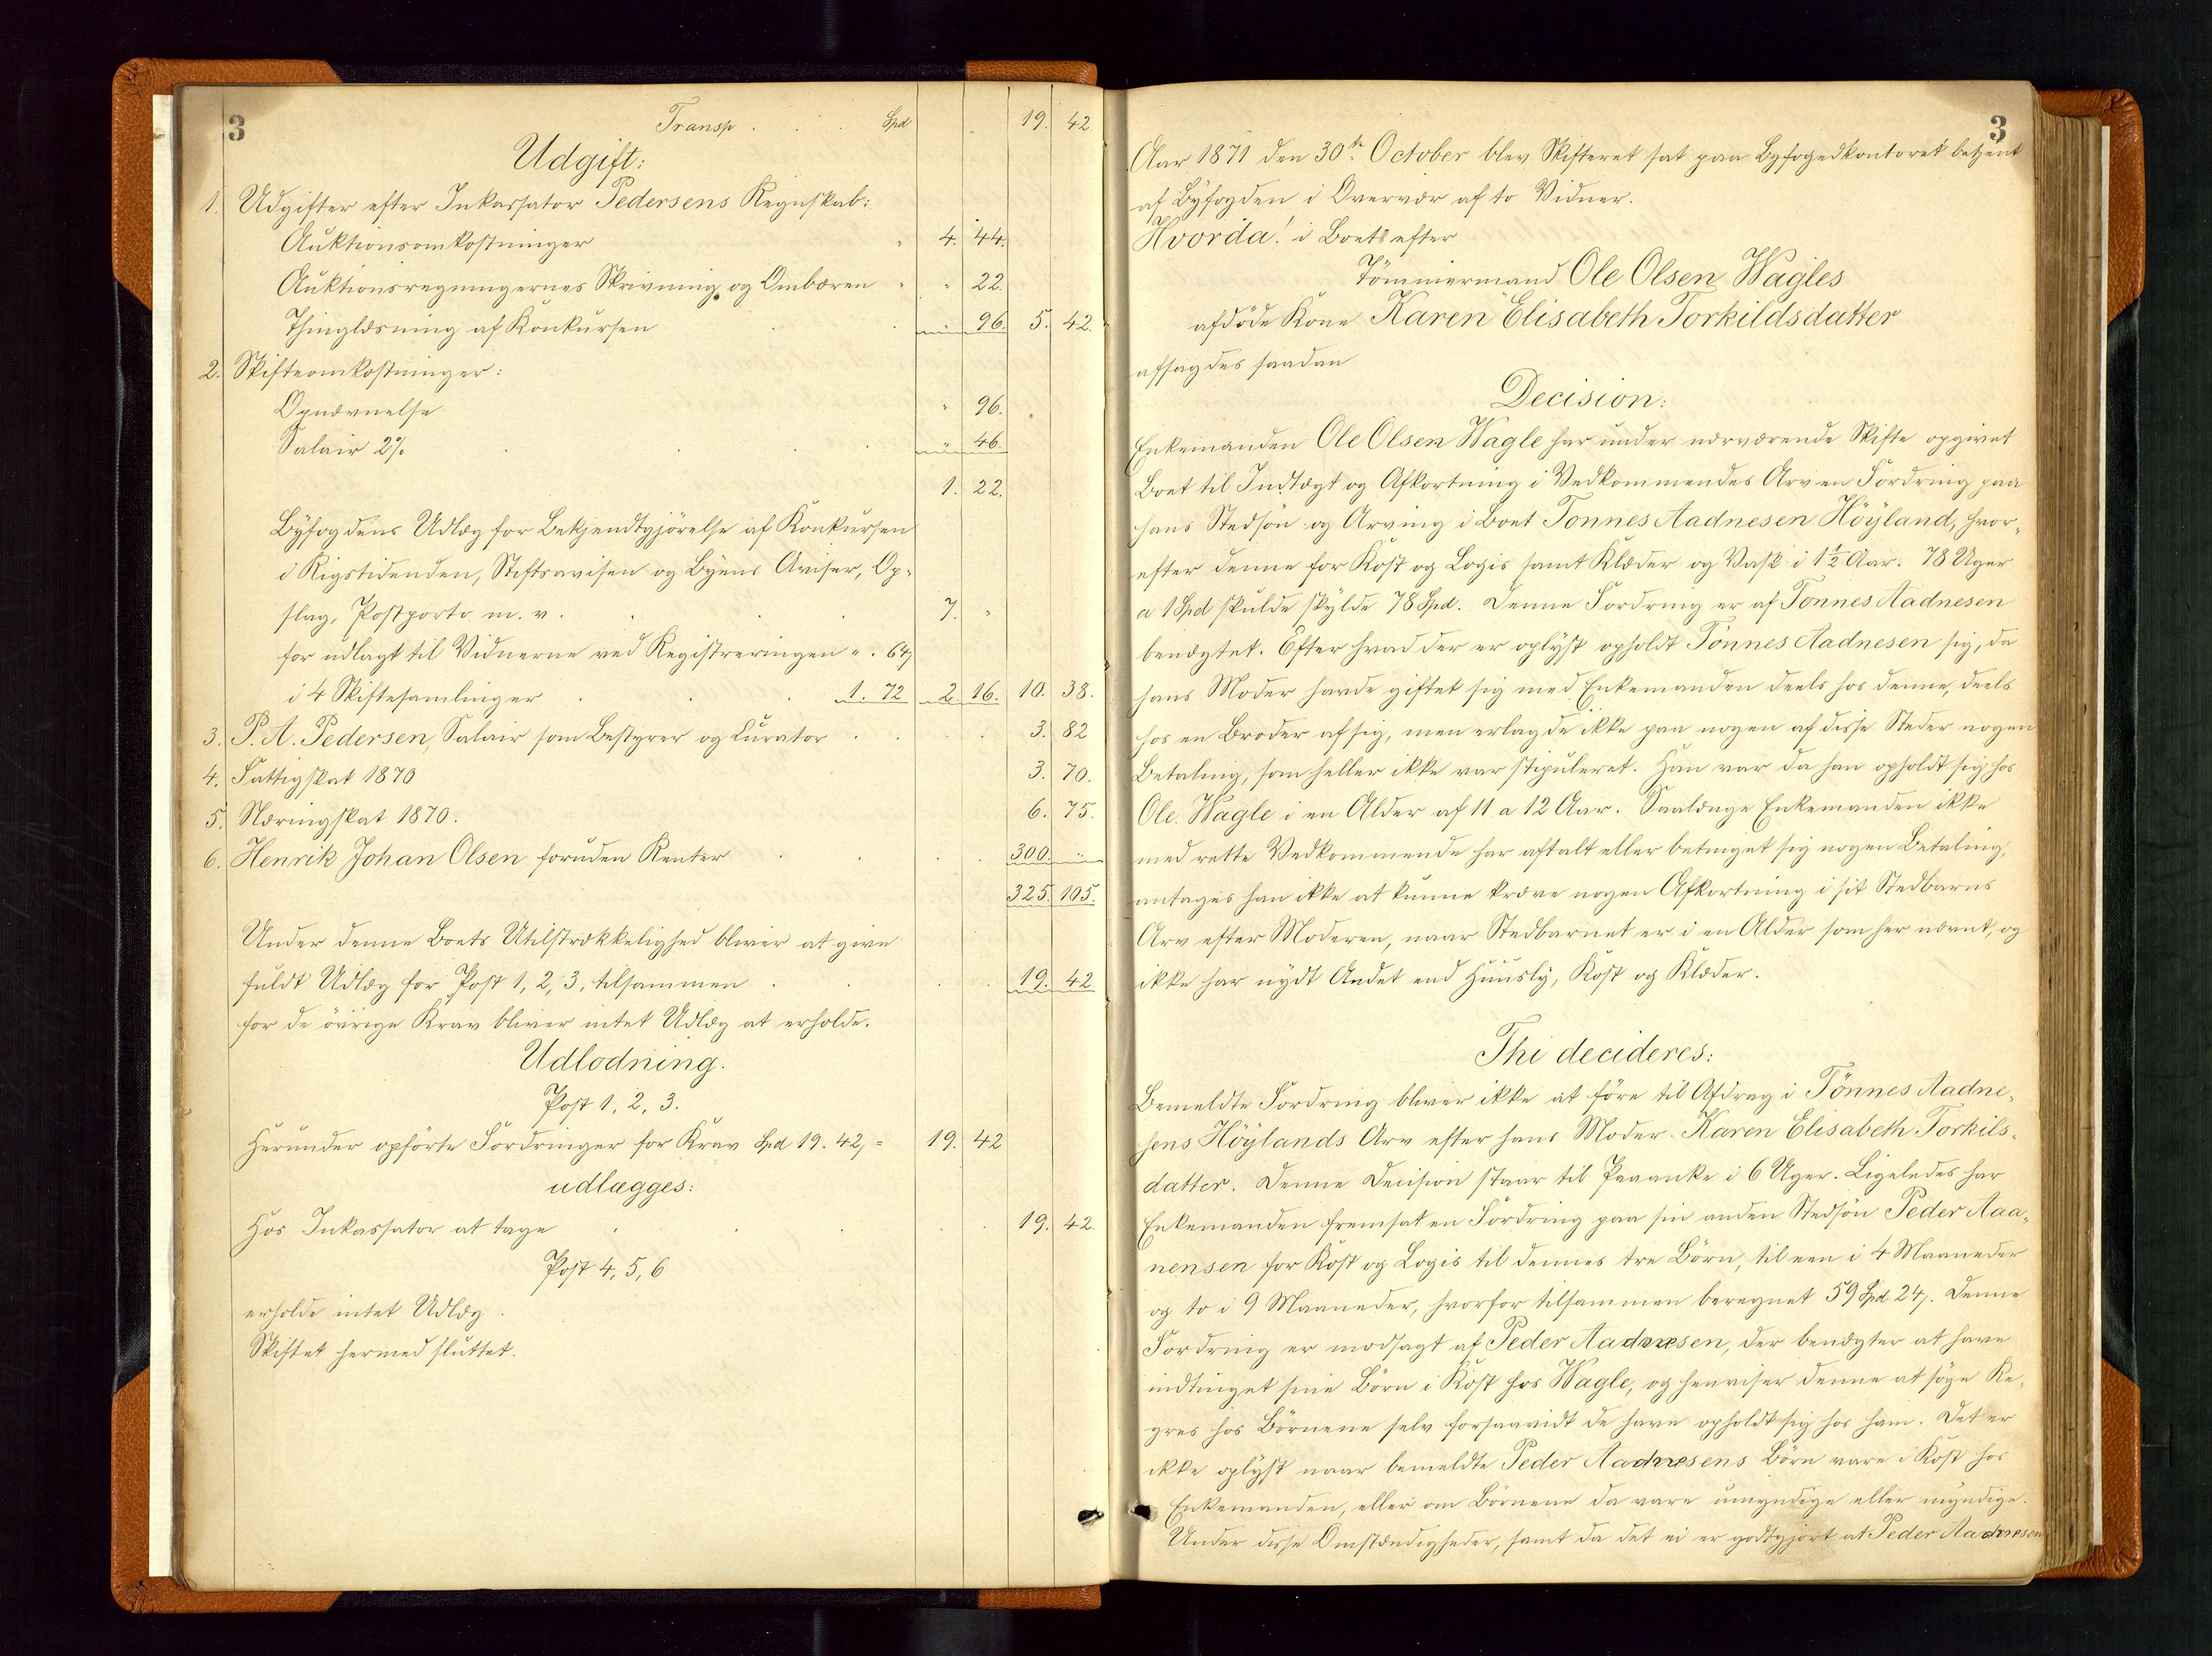 3
Transp . . . Spd 19. 42.
Udgift:
1. Udgifter efter Inkassator Pedersens Regnskab:
Auktionsomkostninger " 4. 44.
Auktionsregningernes Skrivning og Ombæren " " 22.
Thinglæsning af Konkursen " 96. 5. 42.
2. Skifteomkostninger:
Opnævnelse " 96.
Salair 2% " 46
1. 22.
Byfogdens Udlæg for Bekjendtgjörelse af Konkursen
i Rigstidenden, Stiftsavisen og Byens Aviser, Op-
slag, Postporto m. v. 7. "
for udlagt til Vidnerne ved Registreringen ". 64
i 4 Skiftesamlinger 1. 72 2. 16. 10. 38.
3. P. A. Pedersen, Salair som Bestyrer og Curator 3. 82
4. Fattigskat 1870 3. 70.
5. Næringskat 1870. 6. 75.
6. Henrik Johan Olsen, foruden Renter 300. "
325. 105.
Under denne Boets Utilstrækkelighed bliver at give
fuldt Udlæg for Post 1, 2, 3, tilsammen 19. 42.
for de övrige Krav bliver intet Udlæg at erholde.
Udlodning.
Post 1, 2, 3.
Herunder opförte Fordringer for Krav Spd 19. 42, = 19. 42
udlægges:
Hos Inkassator at tage 19. 42.
Post 4, 5, 6
erholde intet Udlæg.
Skiftet hermed sluttet.
3
Aar 1871 den 30te October blev Skifteret sat paa Byfogedkontoret betjent
af Byfogden i Overvær af to Vidner.
Hvorda! i Boet efter
Tömmermand Ole Olsen Wagles
afdöde Kone Karen Elisabeth Torkildsdatter
afsagdes saadan
Decision:
Enkemanden Ole Olsen Wagle har under nærværende Skifte opgivet
Boet til Indtægt og Afkortning i Vedkommendes Arv en Fordring paa
hans Stedsön og Arving i Boet Tonnes Aadnesen Höyland, hvor-
efter denne for Kost og Logis samt Klæder og Vask i 1½ Aar. 78 Uger
a 1 Spd skulde skylde 78 Spd. Denne Fordring er af Tonnes Aadnesen
benægtet. Efter hvad der er oplyst opholdt Tönnes Aadnesen sig, da
hans Moder havde giftet sig med Enkemanden deels hos denne, deels
hos en Broder af sig, men erlagde ikke paa nogen af disse Steder nogen
Betaling, som heller ikke var stipuleret. Han var da han opholdt sig hos
Ole Wagle i en Alder af 11 a 12 Aar. Saalænge Enkemanden ikke
med rette Vedkommende har aftalt eller betinget sig nogen Betaling,
antages han ikke at kunne kræve nogen Afkortning i sit Stedbarns
Arv efter Moderen, naar Stedbarnet er i en Alder som her nævnt, og
ikke har nydt Andet end Huusly, Kost og Klæder.
Thi decideres:
Bemeldte Fordring bliver ikke at före til Afdrag i Tönnes Aadne-
sens Höylands Arv efter hans Moder Karen Elisabeth Torkils-
datter. Denne Decision staar til Paaanke i 6 Uger. Ligeledes har
Enkemanden fremsat en Fordring paa sin anden Stedsön Peder Aaa-
nensen for Kost og Logis til dennes tre Börn, til een i 4 Maaneder
og to i 9 Maaneder, hvorfor tilsammen beregnet 59 Spd 24. Denne
Fordring er modsagt af Peder Aadnesen, der benægter at have
indtinget sine Börn i Kost hos Wagle, og henviser denne at söge Re-
gres hos Börnene selv forsaavidt de have opholdt sig hos ham. Det er
ikke oplyst naar bemeldte Peder Aadnesens Börn vare i Kost hos
Enkemanden, eller om Börnene da vare umyndige eller myndige.
Under disse Omstændigheder, samt da det ei er godtgjort at Peder Aadnesen